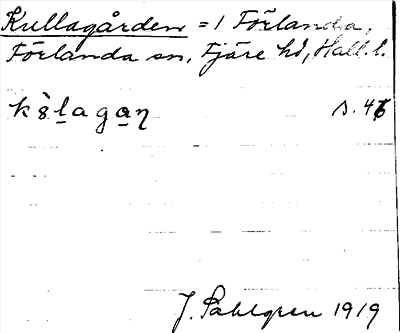 Kullagården = 1 Förlanda,
Förlanda sn, Fjäre hd, Hall. l.
k8̀l̠aga̠ɳ s. 46
J. Sahlgren 1919